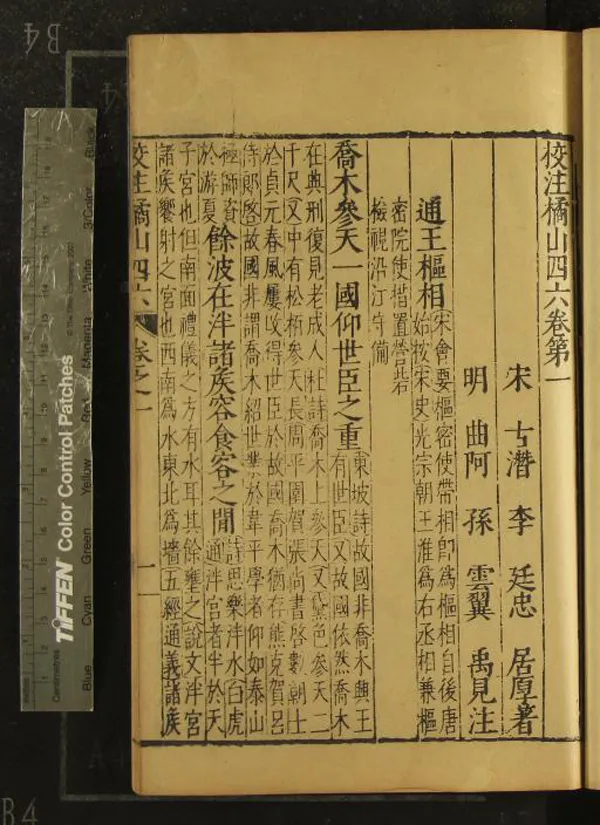 校注橘山四六卷第一
宋 古潛 李 廷忠 居厚著
明 曲阿 孫 雲翼 禹見注
通王樞相 宋會要樞密使帶相卽爲樞相自後唐
始按宋史光宗朝王淮爲右丞相兼樞
密院使措置營砦
檢視沿江守備
喬木參天一國仰世臣之重 東坡詩故國非喬木興王
有世臣又故國依然喬木
在典刑復見老成人杜詩喬木上參天又黛色參天二
千尺又中有松柏參天長周平園賀張尚書啓數朝士
於貞元春風屢改得世臣於故國喬木猶存熊克賀呂
侍郞啓故國非謂喬木紹世業於韋平學者仰如泰山
極師資
於游夏 餘波在泮諸矦容食客之閒 詩思樂泮水白虎
通泮宮者半於天
子宮也但南面禮儀之方有水耳其餘壅之說文泮宮
諸矦饗射之宮也西南爲水東北爲墻五經通義諸矦
校注橘山四六 卷之一
一
TIFFEN Color Control Patches
© The Tiffen Company, 2007
Centimetres
Blue Cyan Green Yellow Red Magenta White 3/Color Black
B4
B4